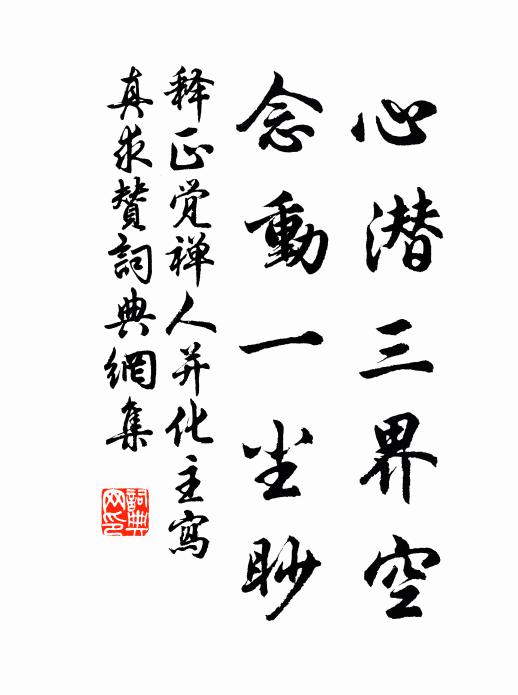 心潜三界空
念動一尘眇
释正觉禅人并化主寫
真求贊詞典網集
詞典网印